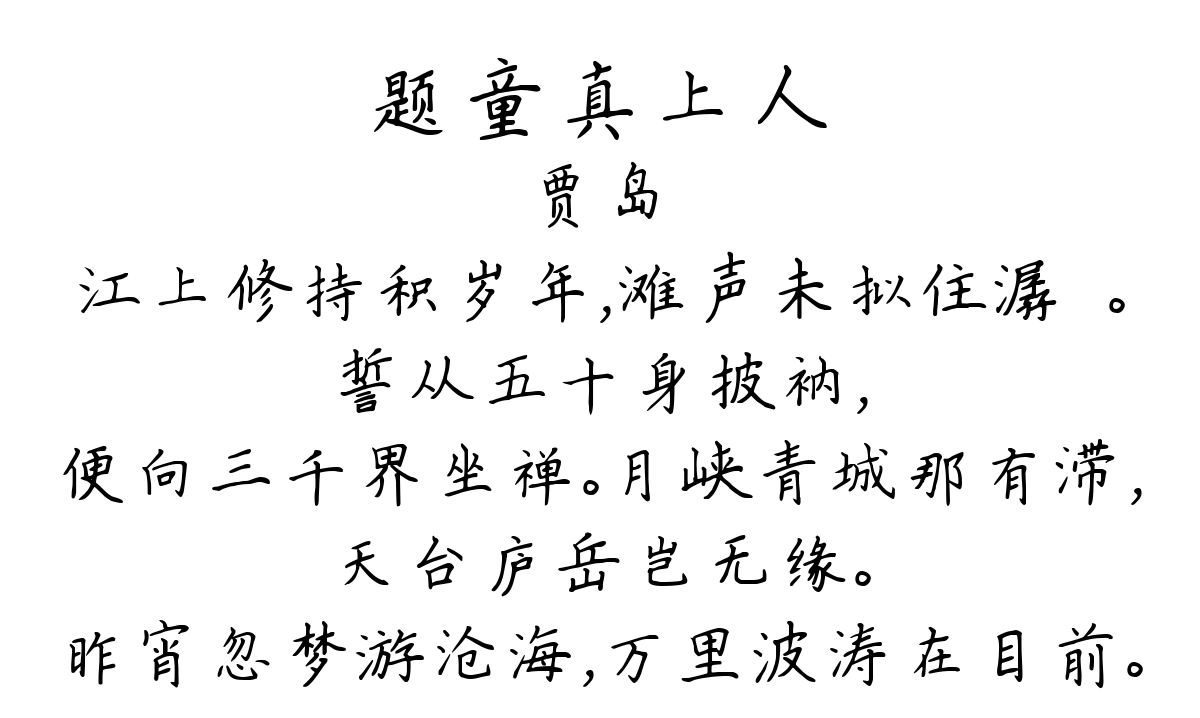 题童真上人
贾岛
江上修持积岁年,滩声未拟住潺。
誓从五十身披衲,
便向三千界坐禅。月峡青城那有滞,
天台庐岳岂无缘。
昨宵忽梦游沧海,万里波涛在目前。